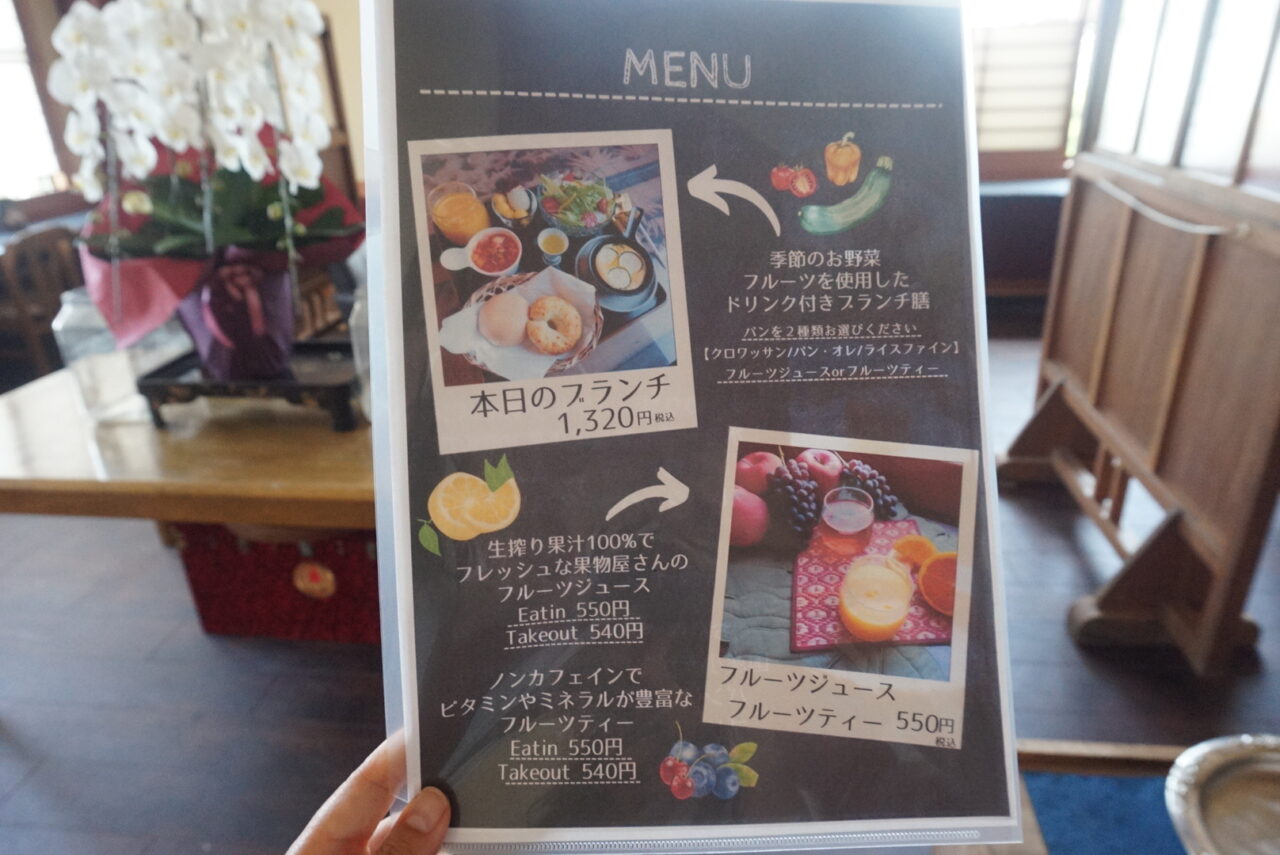 MENU
季節のお野菜
フルーツを使用した
ドリンク付きブランチ膳
パンを2種類お選びください
【クロワッサン/パン・オレ/ライスファイン】
フルーツジュースorフルーツティー
本日のブランチ
1,320円税込
生搾り果汁100%で
フレッシュな果物屋さんの
フルーツジュース
Eatin 550円
Takeout 540円
ノンカフェインで
ビタミンやミネラルが豊富な
フルーツティー
Eatin 550円
Takeout 540円
フルーツジュース
フルーツティー 550円
税込